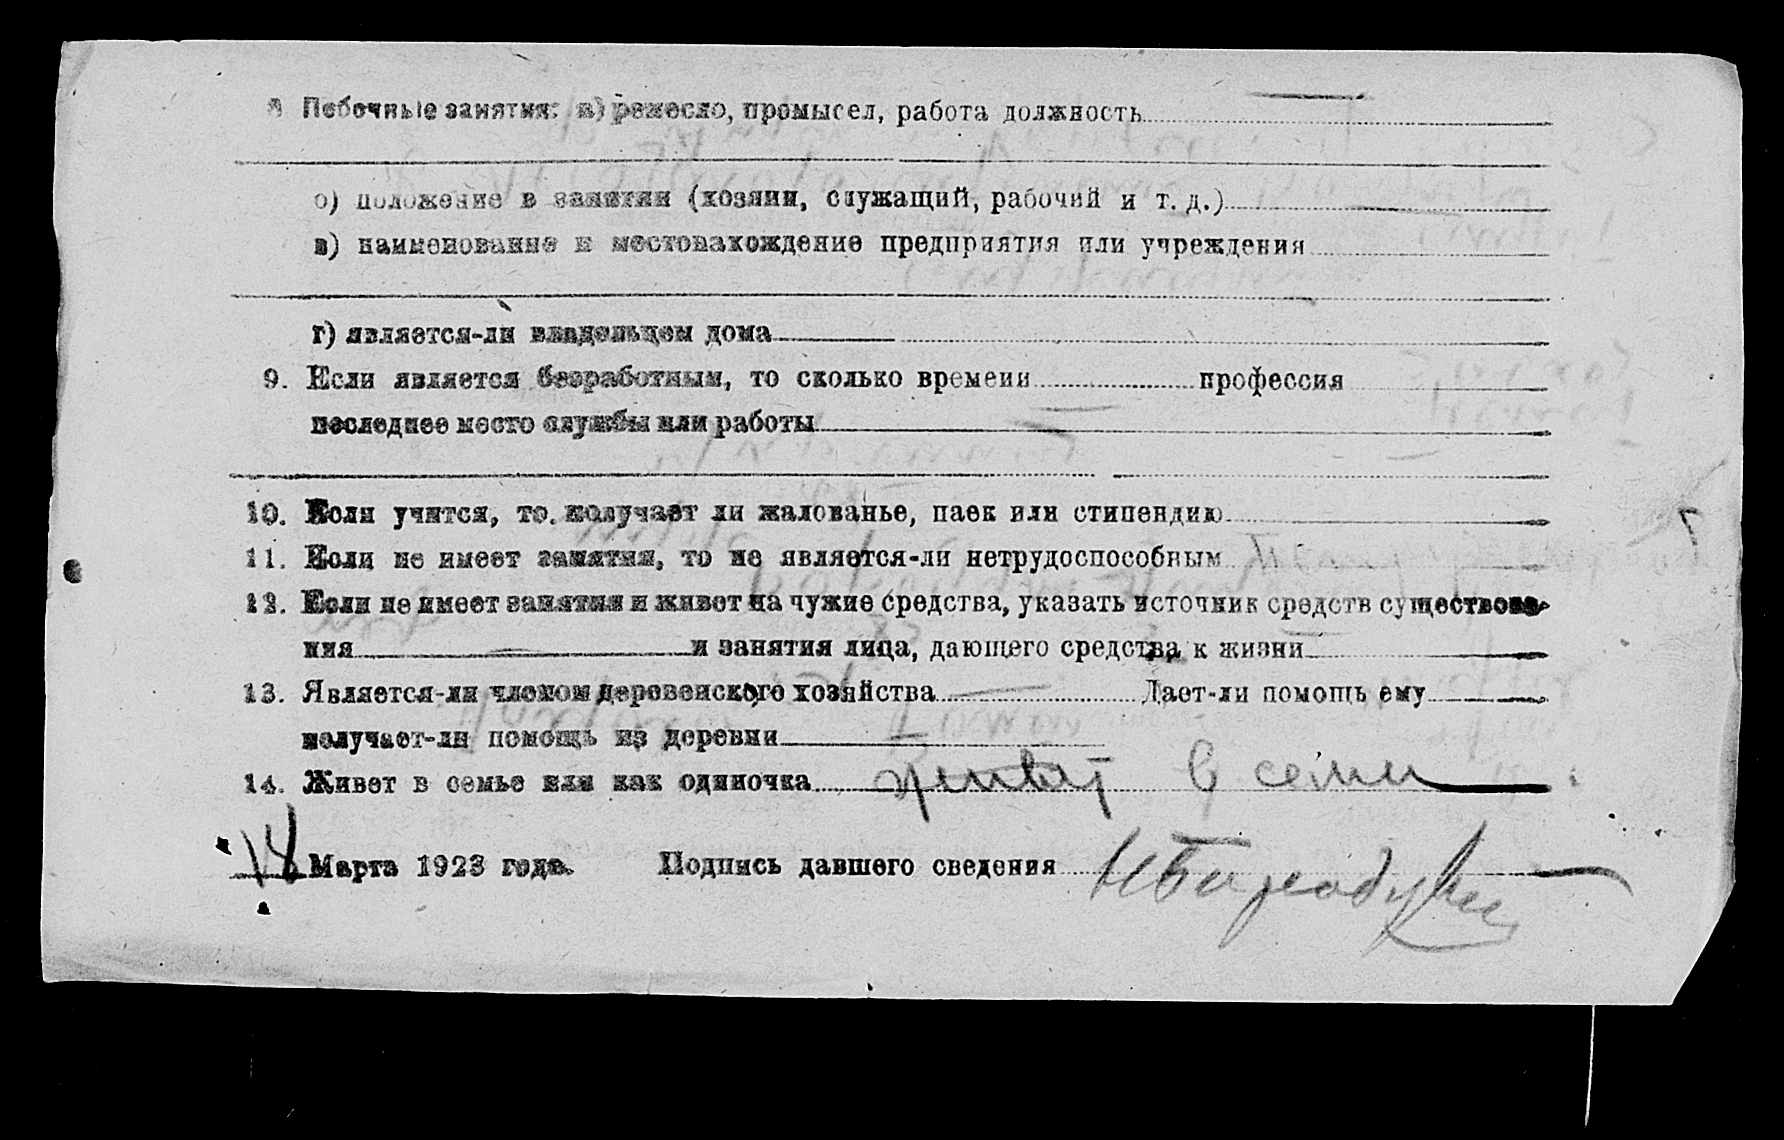 8 Побочные занятия: а) ремесло, промысел, работа должность
б) положение в занятии (хозяин, служащий, рабочий и т. д.)
в) наименование и местонахождение предприятия или учреждения
г) является-ли владельцем дома
9. Если является безработным, то сколько времени профессия
последнее место службы или работы
10. Если учится, то получает ли жалованье, паек или стипендию
11. Если не имеет занятия, то не является-ли нетрудоспособным
12. Если не имеет занятия и живет на чужие средства, указать источник средств существова-
ния и занятия лица, дающего средства к жизни
13. Является-ли членом деревенского хозяйства Дает-ли помощь ему
получает-ли помощь из деревни
14. Живет в семье или как одиночка живет в семьи
18 Марта 1923 года. Подпись давшего сведения